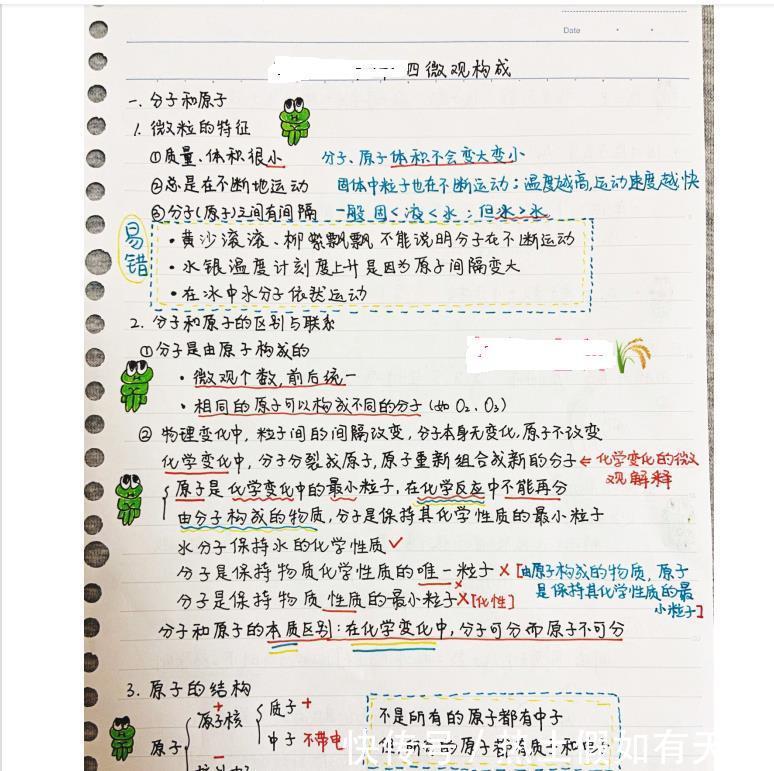 Date
四 微观构成
一. 分子和原子
1. 微粒的特征
①质量、体积很小 分子、原子体积不会变大变小
②总是在不断地运动 固体中粒子也在不断运动;温度越高,运动速度越快
③分子(原子)之间有间隔 一般 固<液<水;但水>水
易错
·黄沙滚滚、柳絮飘飘 不能说明分子在不断运动
·水银温度计刻度上升是因为原子间隔变大
·在冰中水分子依然运动
2. 分子和原子的区别与联系
①分子是由原子构成的
·微观个数,前后统一
·相同的原子可以构成不同的分子(如O₂、O₃)
② 物理变化中,粒子间的间隔改变,分子本身无变化,原子不改变
化学变化中,分子分裂成原子,原子重新组合成新的分子←化学变化的微观解释
原子是化学变化中的最小粒子,在化学反应中不能再分
由分子构成的物质,分子是保持其化学性质的最小粒子
水分子保持水的化学性质✓
分子是保持物质化学性质的唯一粒子×[由原子构成的物质,原子是保持其化学性质的最小粒子]
分子是保持物质性质的最小粒子×[化性]
分子和原子的本质区别:在化学变化中,分子可分而原子不可分
3. 原子的结构
原子 原子核+ 质子+
中子 不带电
不是所有的原子都有中子
所有的原子都有质子和
快传号/热土假如有天